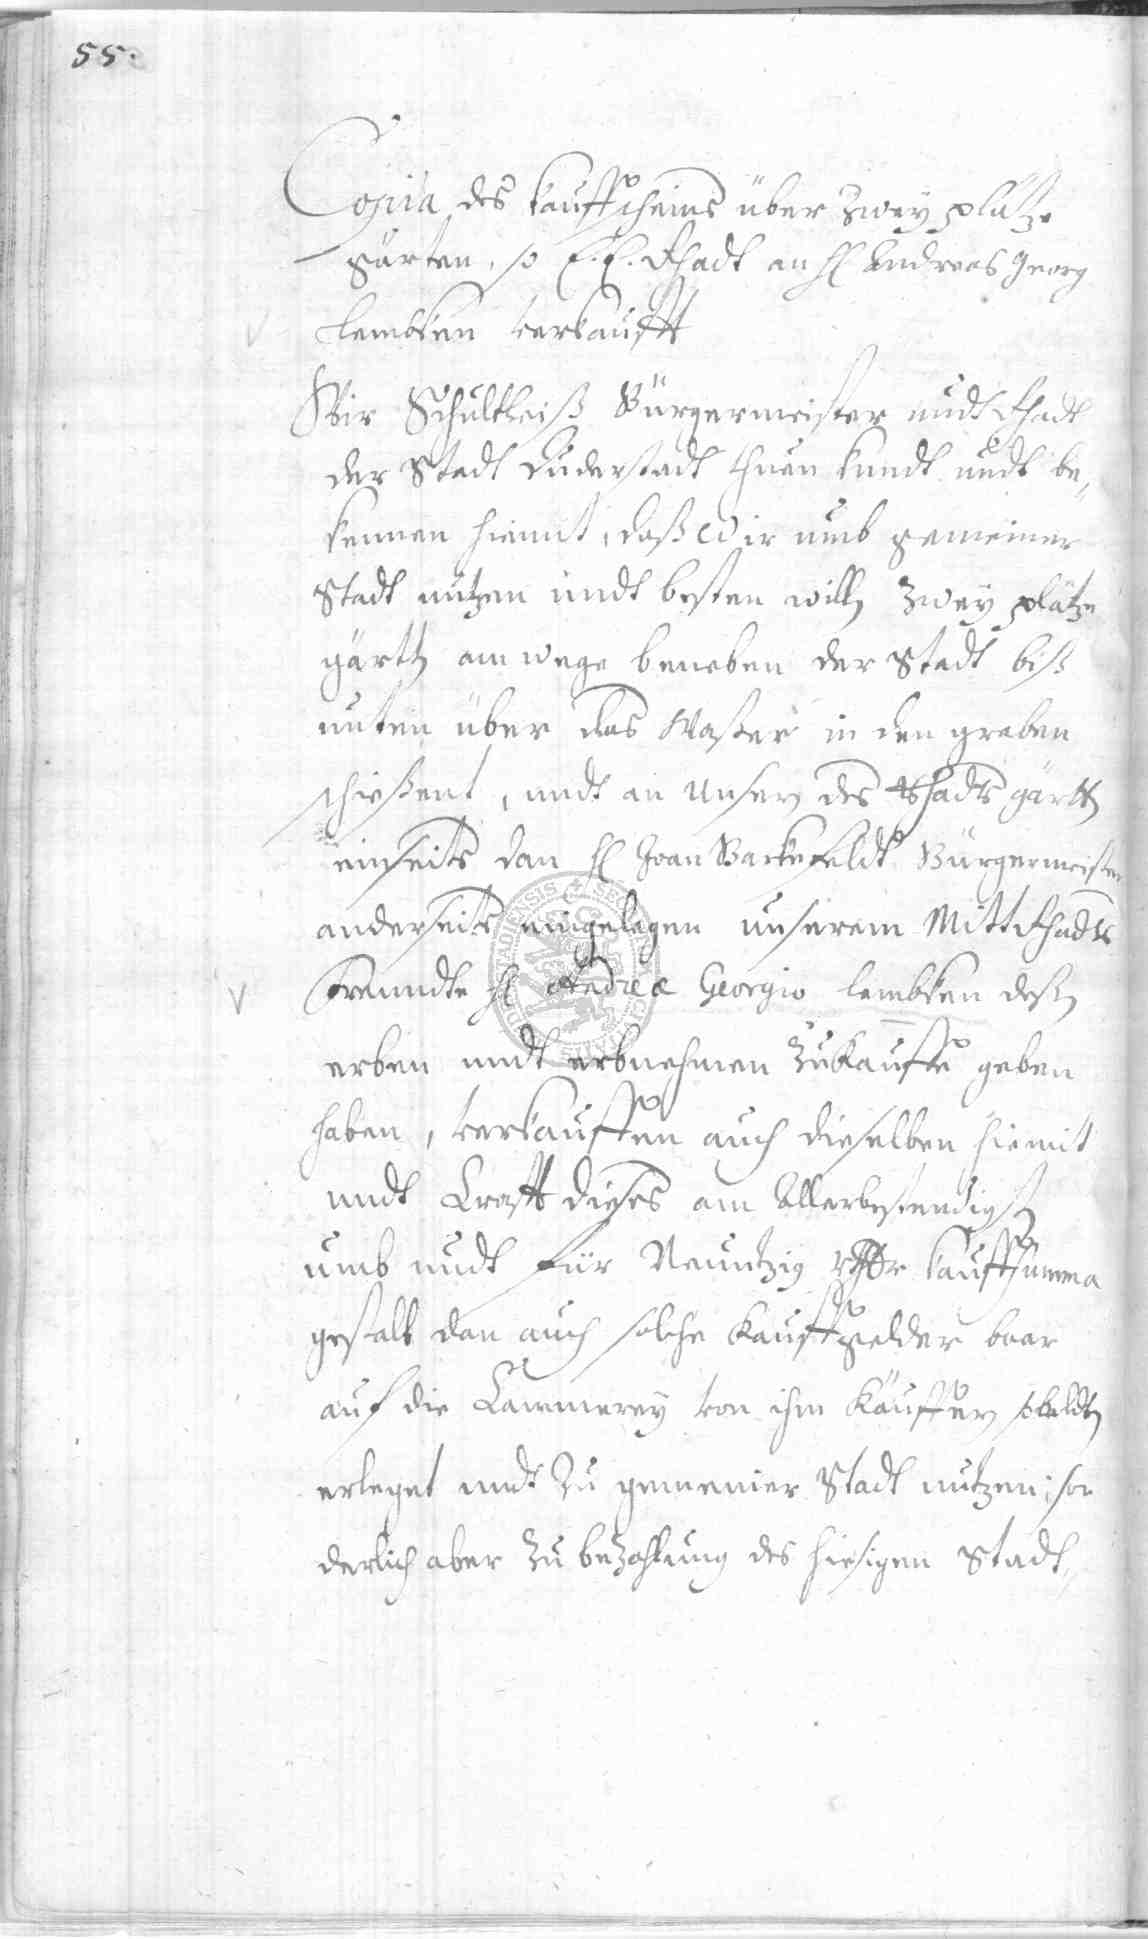 55.
Copia des kauffscheins über zwey plätze
gärten, so E. E. Rhadt an H Andreas Georg
Lembken verkaufft
Wir Schultheiß Bürgermeister undt Rhadt
der Stadt Duderstadt thuen kundt undt be„
kennen hiemit, daß wir umb gemeiner
Stadt nutzen undt besten willn zwey plätze
gärtn am wege beneben der Stadt biß
unten über das Waßer in den graben
schießent, undt an unsern des Rhadts gärtn
einseits dan H Joan Barkefeldt Bürgermeister
anderseits eingelegen unserem Mitt Rhadts
freundte H Andreæ Georgio Lembken deßn
erben undt erbnehmen zukauffe geben
haben, verkauffen auch dieselben hiemit
undt Crafft dieses am Allerbestendigstn
umb undt für Neuntzig rthlr kauffsumma
gestalt dan auch solche kauffgelder baar
auf die Cammerey von ihm Käuffern sobaldtn
erleget undt zu gemeiner Stadt nutzen, son
derlich aber zu bezahlung des hiesigen Stadt„